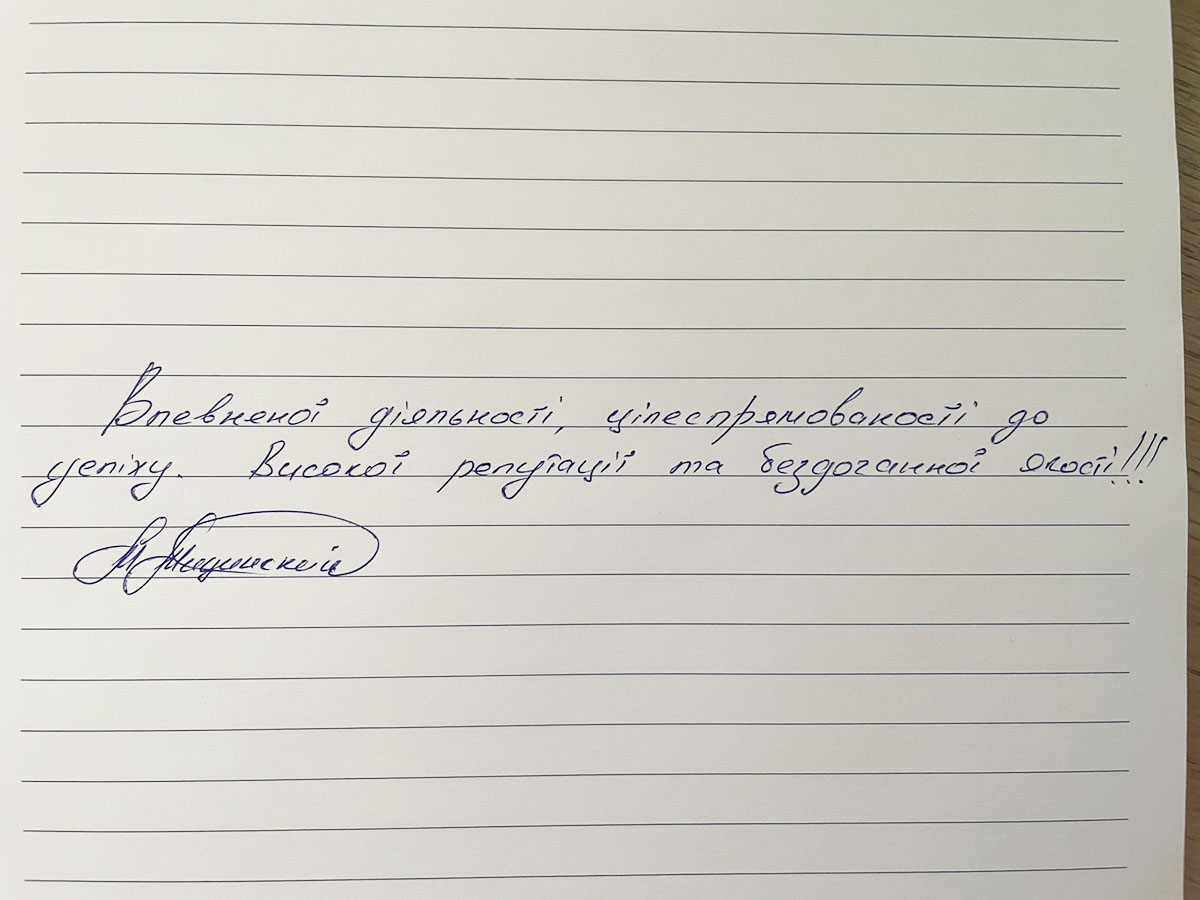 Впевненої діяльності, цілеспрямованості до
успіху. Високої репутації та бездоганної якості!!!